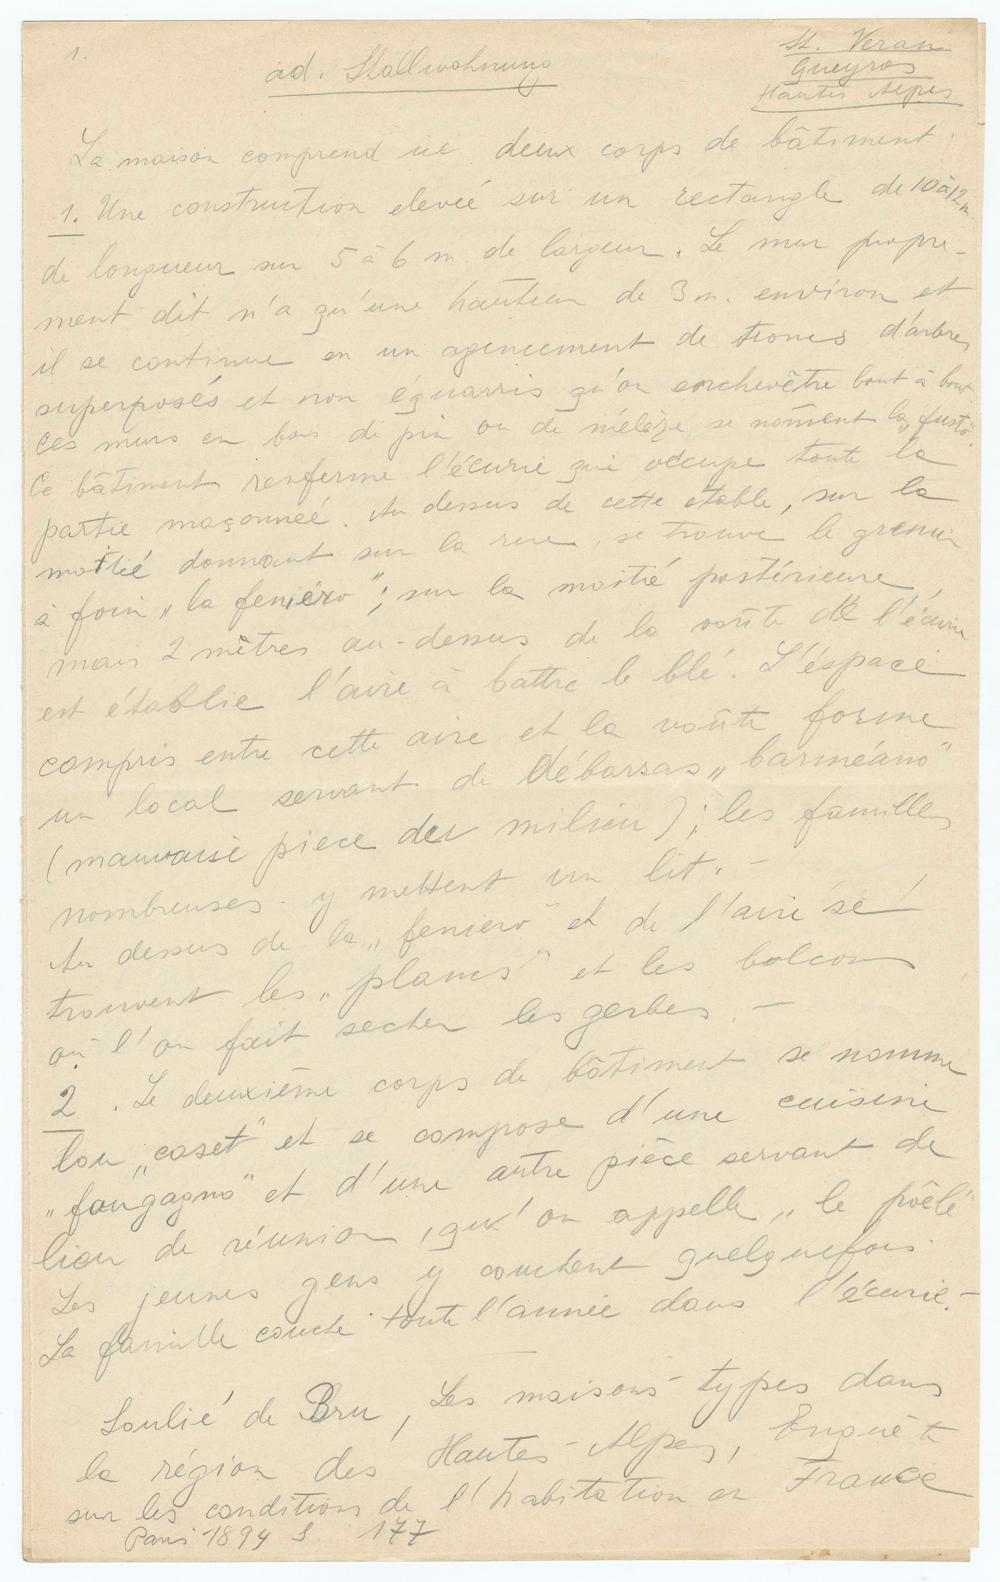 1.
ad. Stallwohnung
St. Veran
Queyras
Hautes Alpes
La maison comprend ici deux corps de bâtiment:
1. Une construction elevée sur un rectangle de 10 à 12 m
de longueur sur 5 à 6 m. de largeur. Le mur propre-
ment dit n'a qu'une hauteur de 3 m. environ et
il se continue en un agencement de troncs d'arbres
superposés et non équarris qu'on enchevêtre bout à bout
Ces murs en bois de pin ou de mélèze se nom̄ent la „fusto".
Ce bâtiment renferme l'écurie qui occupe toute la
partie maçonneé. Au dessus de cette etable, sur la
moitié donnant sur la rue, se trouve le grenier
à foin „la feniéro"; sur la moitié postérieure,
mais 2 mètres au-dessus de la voûte de l'écurie
est établie l'aire à battre le blé. L'éspace
compris entre cette aire et la voûte forme
un local servant de débarsas „barméano"
(mauvaise piece du milieu); les familles
nombreuses y mettent un lit. –
Au dessus de la „feniero" et de l'aire se
trouvent les „plancs" et les balcons
où l'on fait secher les gerbes. –
2. Le deuxième corps de bâtiment se nomme
lou „caset" et se compose d'une cuisine
„fougagno" et d'une autre pièce servant de
lieu de réunion, qu'on appelle „le poêle"
Les jeunes gens y couchent quelquefois.
La famille couche toute l'année dans l'écurie. –
Soulié de Bru, Les maisons-types dans
la région des Hautes-Alpes, Enquête
sur les conditions de l'habitation en France
Paris 1894 S. 177